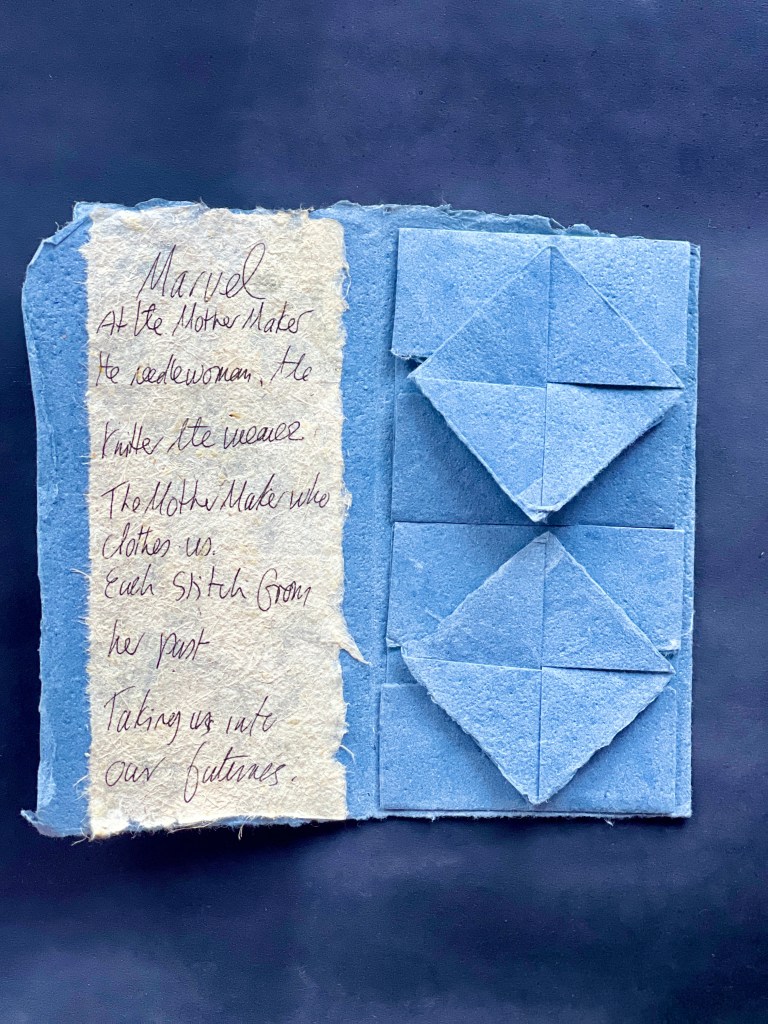 Marvel
At the Mother Maker
the needlewoman, the
knitter the weaver
The Mother Maker who
clothes us.
Each stitch from
her past
Taking us into
our futures.